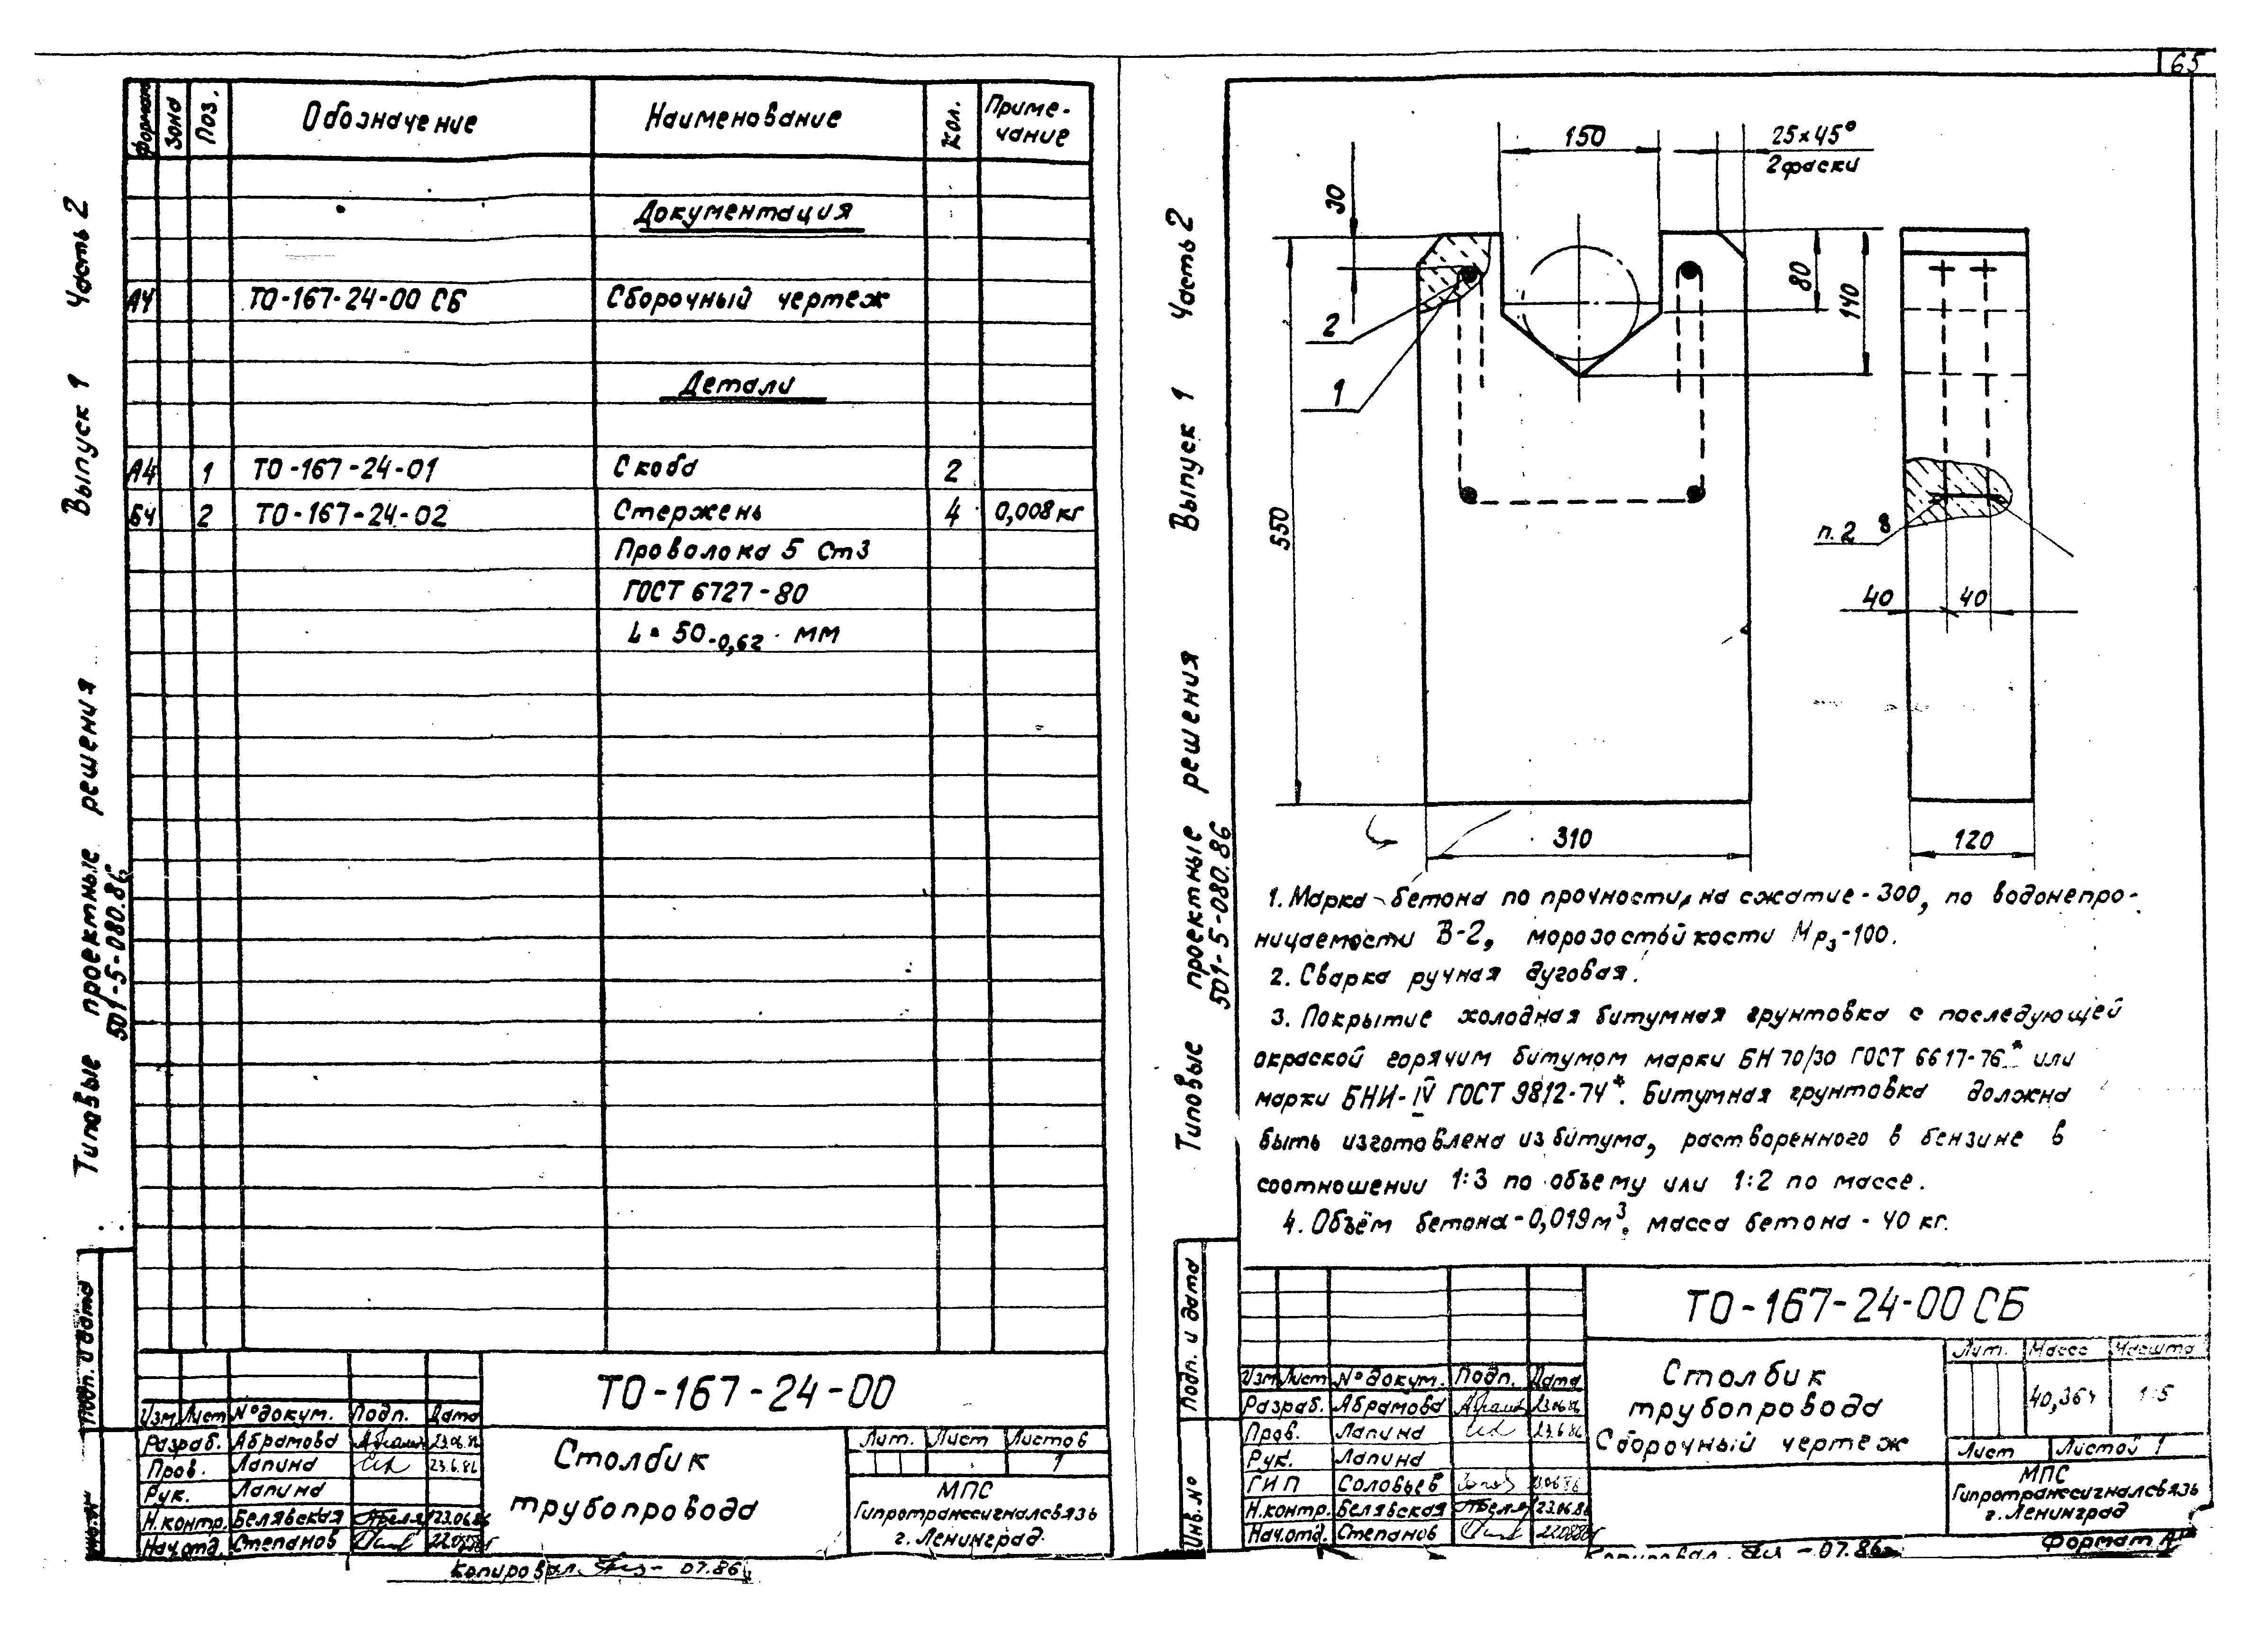 65
Формат
Зона
Поз.
Обозначение
Наименование
Кол.
Приме-
чание
Документация
А4 ТО-167-24-00 СБ Сборочный чертеж
Детали
А4 1 ТО-167-24-01 Скоба 2
БЧ 2 ТО-167-24-02 Стержень 4 0,008 кг
Проволока 5 Ст3
ГОСТ 6727-80
L = 50-0,62 мм
Типовые проектные решения Выпуск 1 Часть 2
501-5-080.86
Подп. и дата
Инв. №
ТО-167-24-00
Изм. Лист № докум. Подп. Дата
Разраб. Абрамова 23.06.86
Пров. Лапина 23.6.86
Рук. Лапина
Н.контр. Белявская 23.06.86
Нач.отд. Степанов
Столбик
трубопровода
Лит. Лист Листов
1
МПС
Гипротранссигналсвязь
г. Ленинград
Копировал. 07.86
Типовые проектные решения Выпуск 1 Часть 2
501-5-080.86
150
25×45°
2 фаски
30
80
140
2
1
550
310
п. 2
8
40
40
120
1. Марка бетона по прочности на сжатие - 300, по водонепро-
ницаемости В-2, морозостойкости Мрз-100.
2. Сварка ручная дуговая.
3. Покрытие холодная битумная грунтовка с последующей
окраской горячим битумом марки БН 70/30 ГОСТ 6617-76* или
марки БНИ-IV ГОСТ 9812-74*. Битумная грунтовка должна
быть изготовлена из битума, растворенного в бензине в
соотношении 1:3 по объему или 1:2 по массе.
4. Объём бетона - 0,019 м³. масса бетона - 40 кг.
Подп. и дата
Инв. №
ТО-167-24-00 СБ
Изм. Лист № докум. Подп. Дата
Разраб. Абрамова 23.06.86
Пров. Лапина 23.6.86
Рук. Лапина
ГИП Соловьев
Н.контр. Белявская 23.06.86
Нач.отд. Степанов
Столбик
трубопровода
Сборочный чертеж
Лит. Масса Масштаб
40,364 1:5
Лист Листов 1
МПС
Гипротранссигналсвязь
г. Ленинград
Копировал. - 07.86
Формат А4